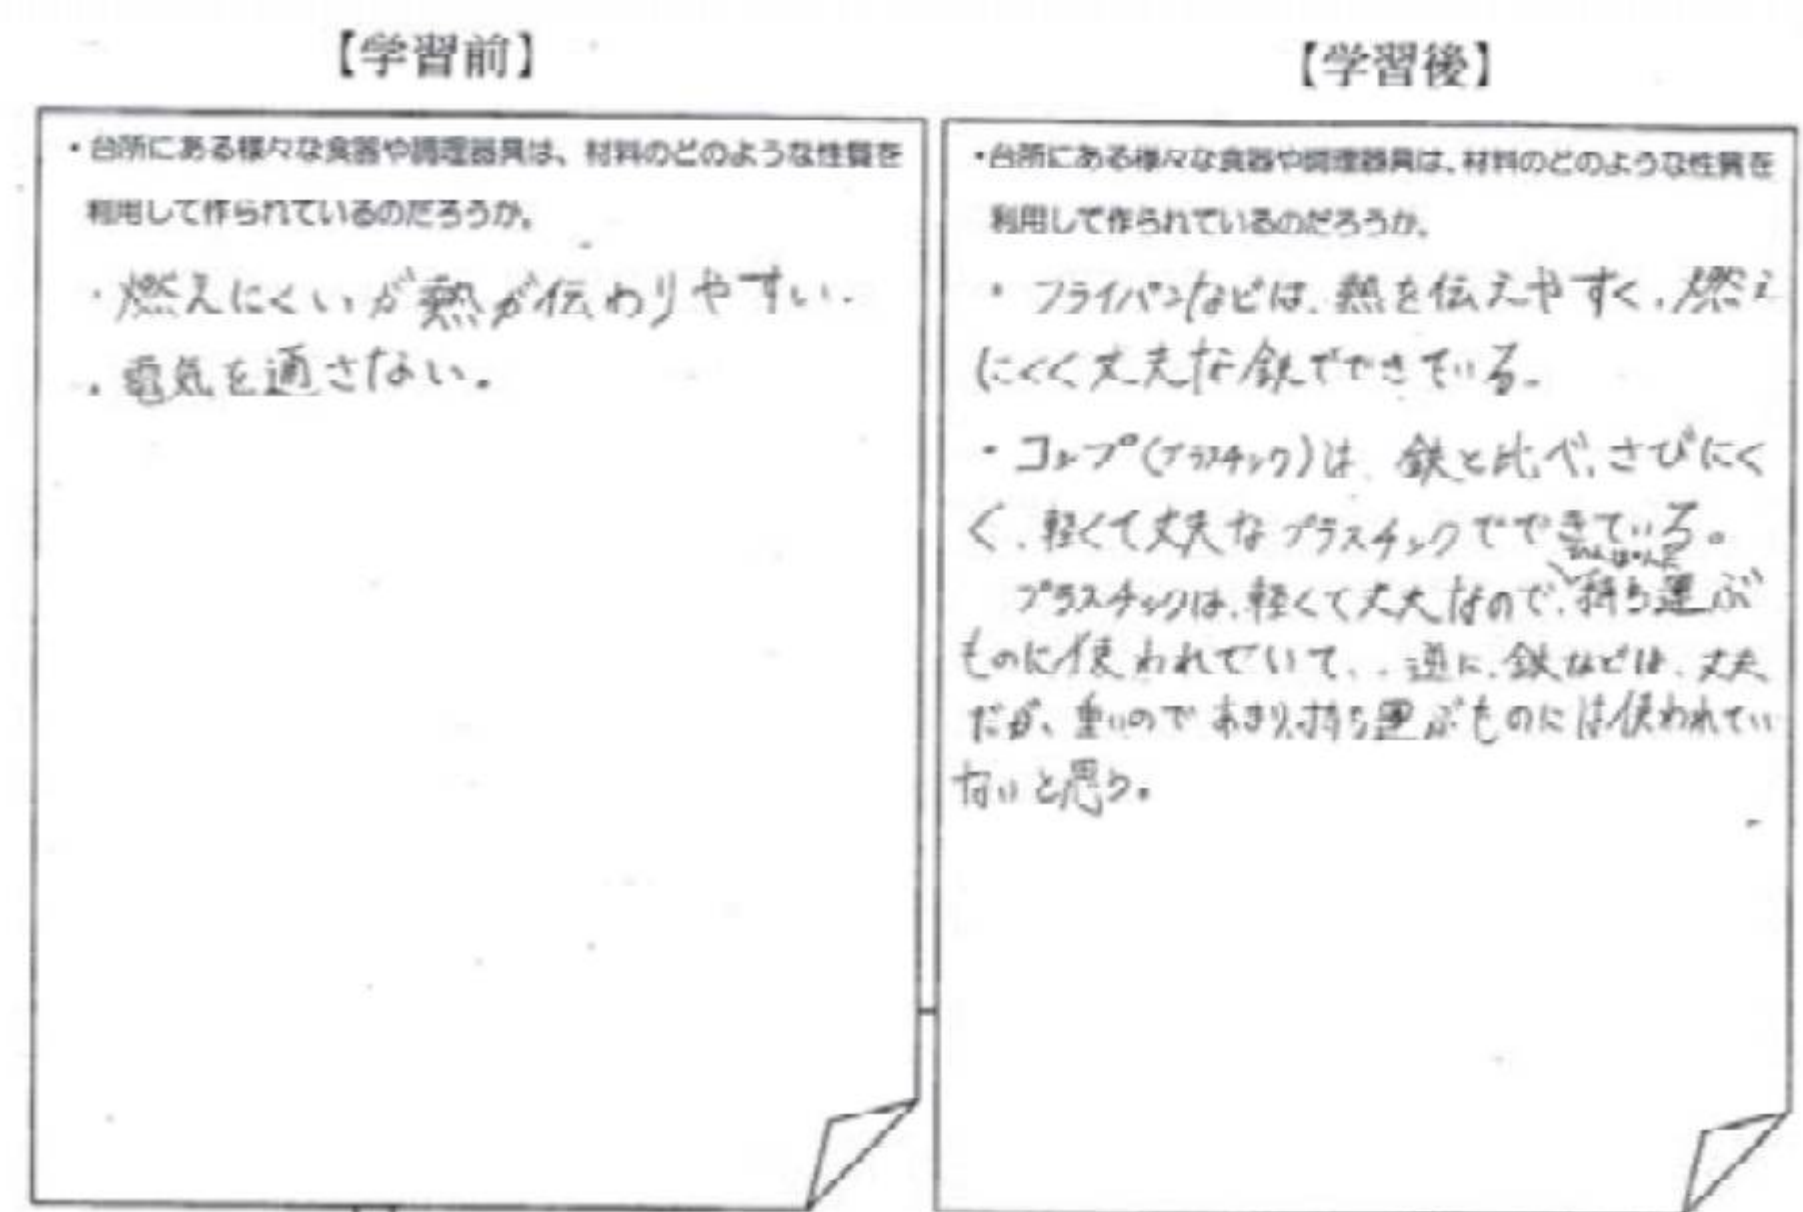 【学習前】
・台所にある様々な食器や調理器具は、材料のどのような性質を
利用して作られているのだろうか。
・燃えにくいが熱が伝わりやすい.
・電気を通さない。
【学習後】
・台所にある様々な食器や調理器具は、材料のどのような性質を
利用して作られているのだろうか。
・フライパンなどは、熱を伝えやすく、燃え
にくく丈夫な鉄でできている。
・コップ(プラスチック)は、鉄と比べ、さびにく
く、軽くて丈夫なプラスチックでできている。
プラスチックは、軽くて丈夫なので、持ち運ぶ
ものに使われていて、逆に、鉄などは、丈夫
だが、重いのであまり、持ち運ぶものには使われてい
ないと思う。